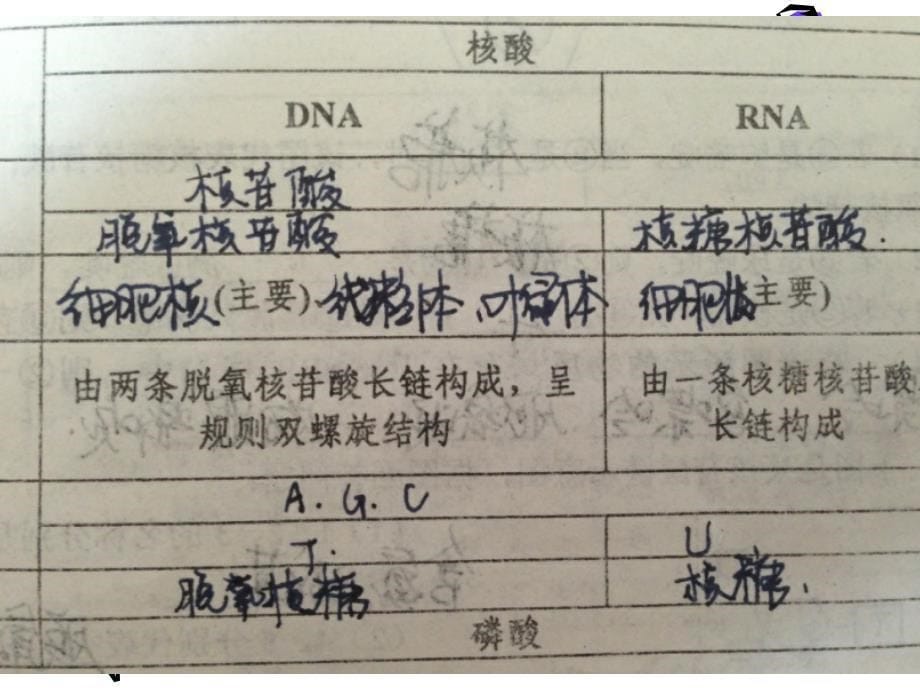 核酸
DNA RNA
核苷酸
脱氧核苷酸 核糖核苷酸.
细胞核(主要)、线粒体、叶绿体 细胞质主要)
由两条脱氧核苷酸长链构成，呈 由一条核糖核苷酸
规则双螺旋结构 长链构成
A. G. C
T. U
脱氧核糖 核糖.
磷酸